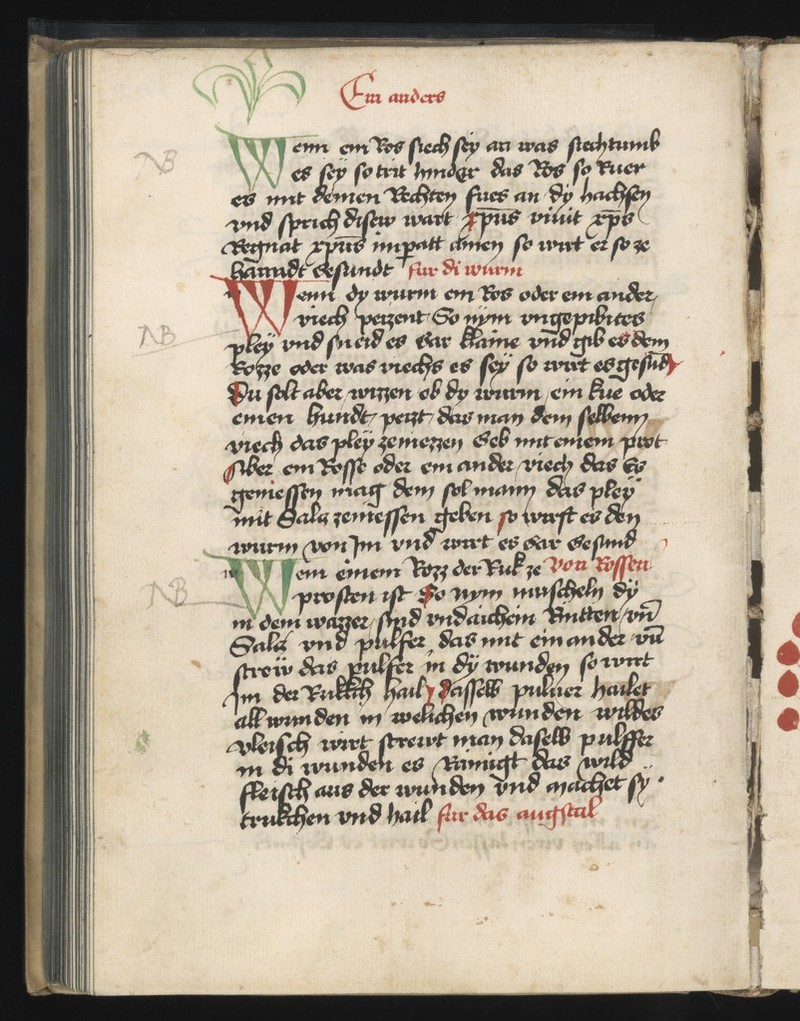 Ein anders
Wenn ein Ros siech sey an was siechtumb
es sey so trit hinder das Ros so Ruer
es mit deinen Rechten fues an dy hachsen
vnd sprich disew wart xp̄us viuit xp̄s
Regnat xp̄us imꝑatt amen so wirt er so ze
hanndt gesundt für di würm
Wenn dy wurm ein Ros oder ein ander
viech peizent So nym vngepibites
pley vnd sneid es gar klaine vnd gib es dem
Rozze oder was viechs es sey so wirt es gesūd
Du solt aber wizzen ob dy wurm ein kue oder
einen hundt peizt das man dem selbem
viech das pley ze niezzen geb mit einem prot
Aber ein Rosse oder ein ander viech das Es
geniessen mag dem sol mann das pley
mit Salz zeniessen geben so wirft es den
wurm von Im vnd wirt es gar gesund
Wem einem Rozz der Ruk ze von Rossen
prosten ist So nym muscheln dy
in dem wazzer sind vnd aichein Rintten vn̄
Salz vnd pulfer das mit ein ander vn̄
strew das pulfer in dy wunden so wirt
Im der Rukkch hail dasselb puluer hailet
all wunden in welichen wunden wildes
vleisch wirt strewt man daselb pulffer
in di wunden es Rainigt das wild
fleisch aus der wunden vnd machet sy
trukchen vnd hail für das augstal
NB
NB
NB